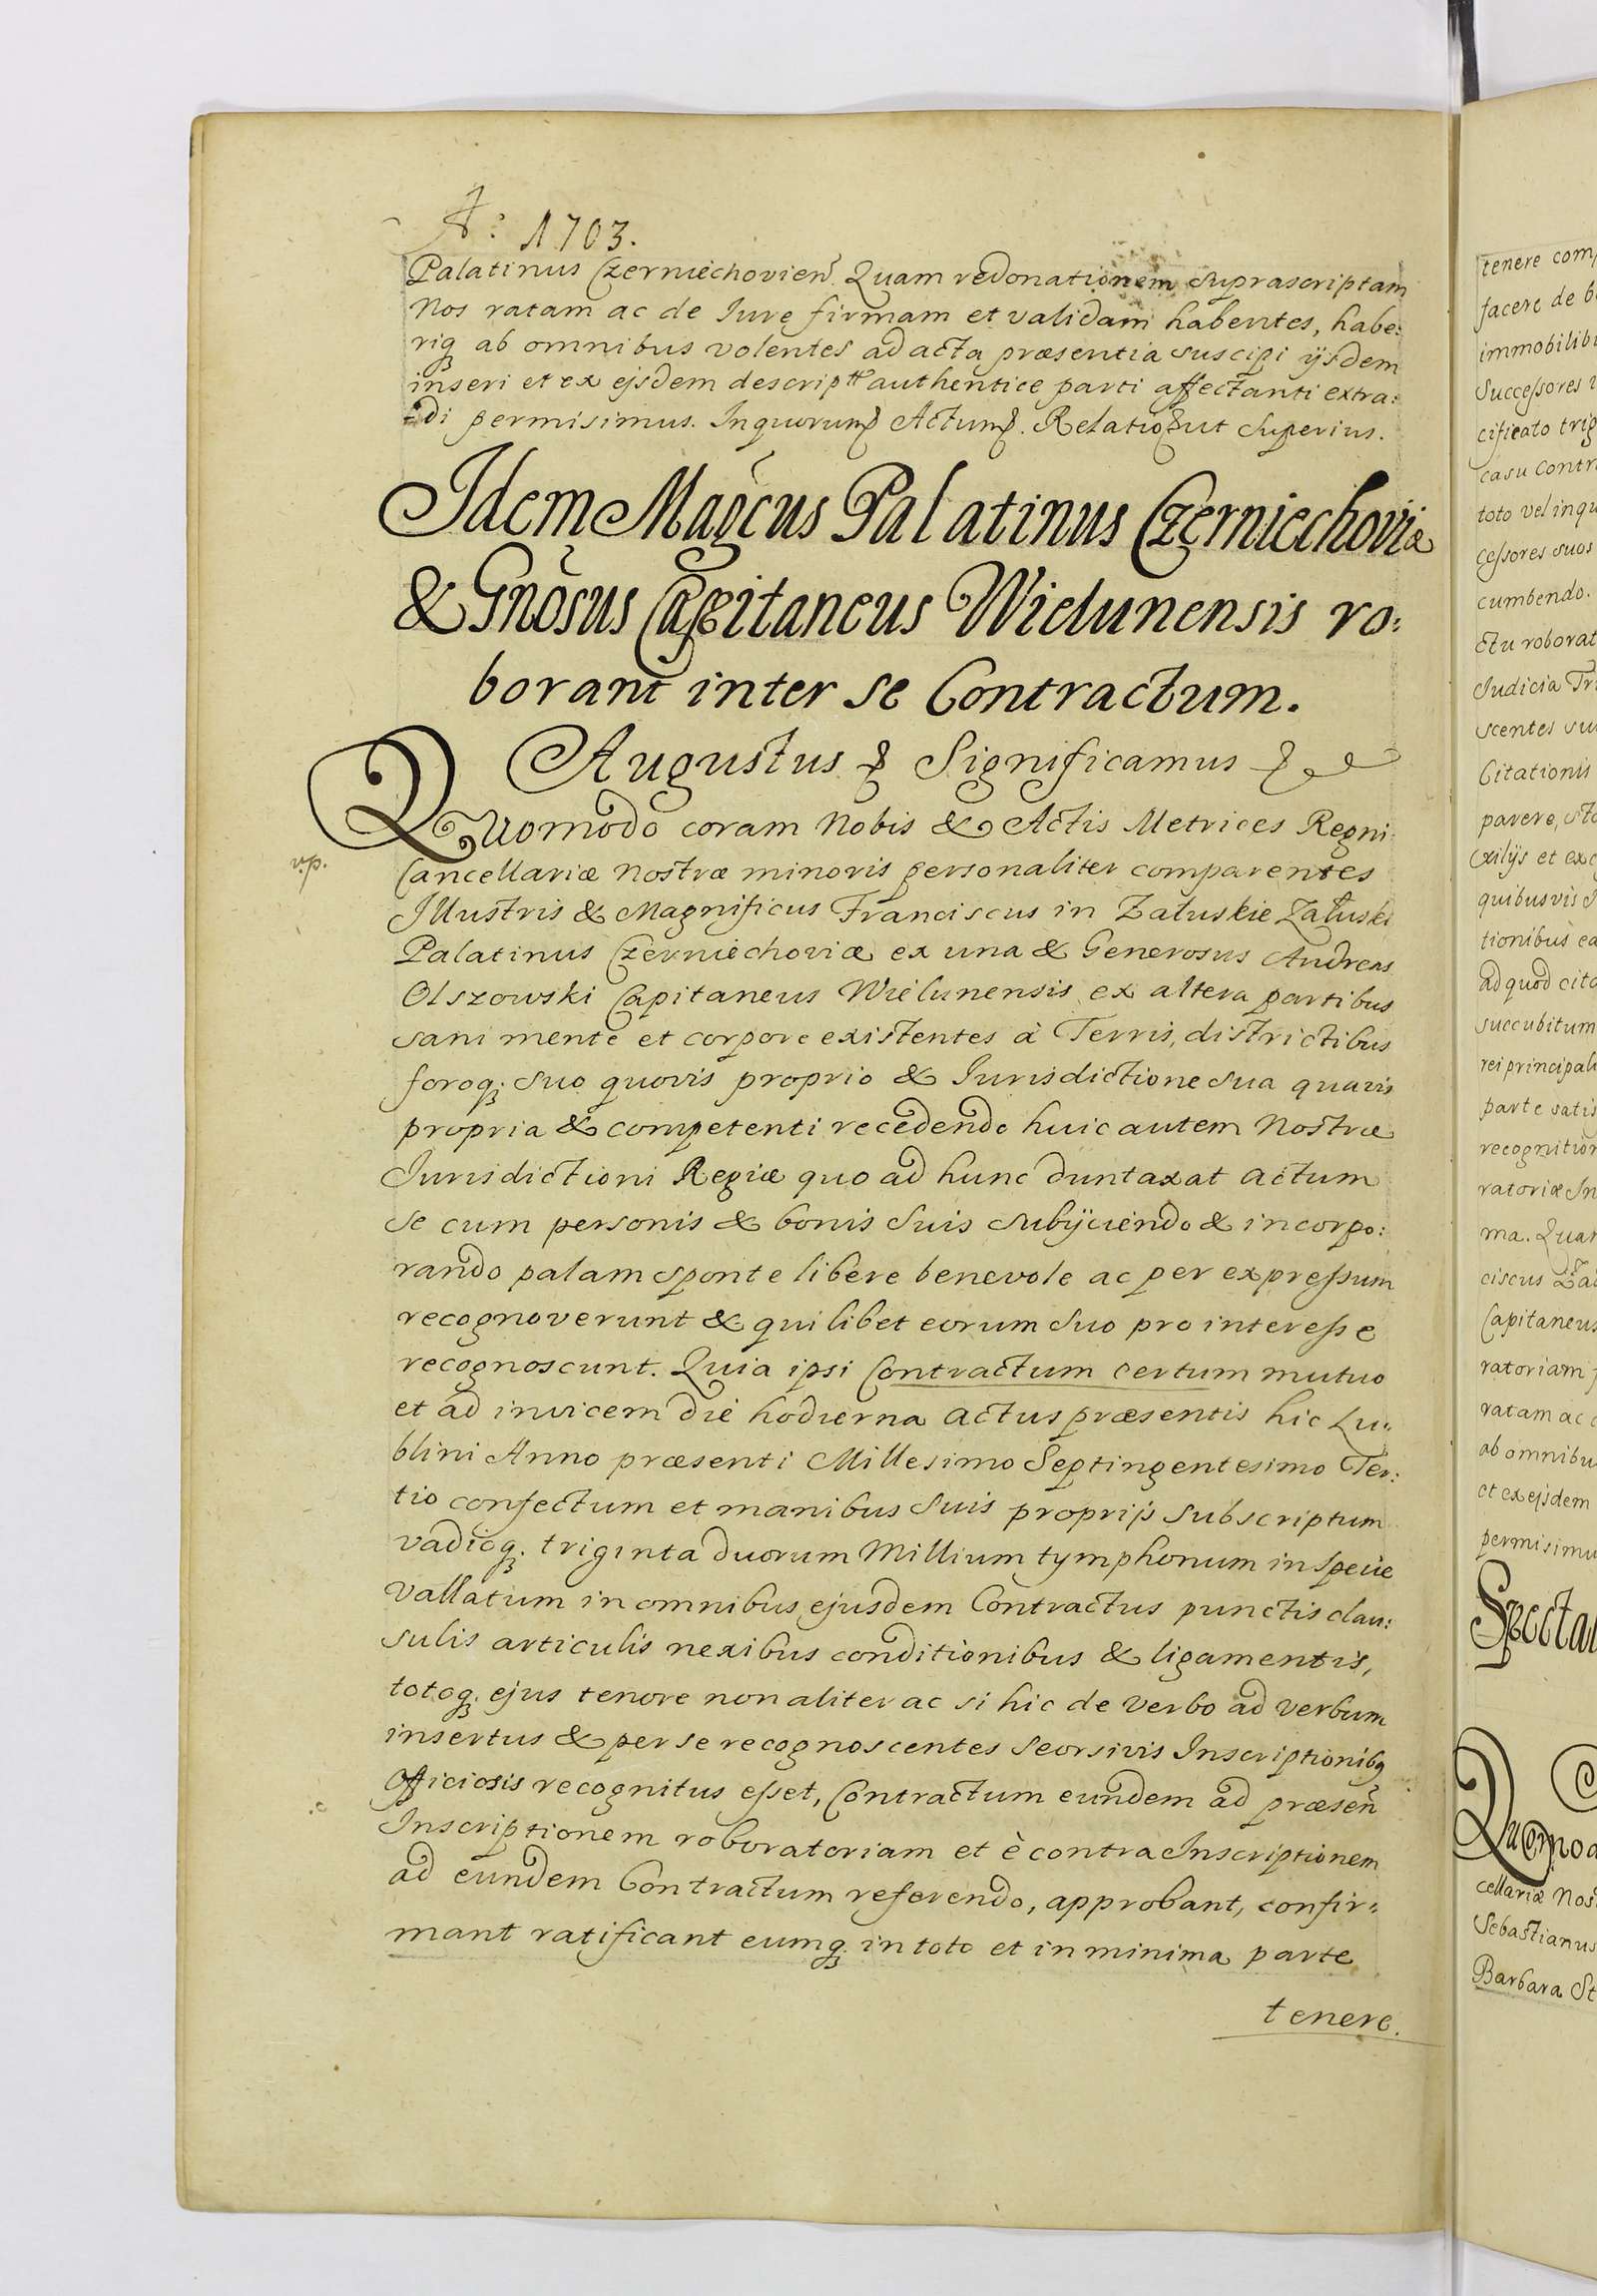 Aº: 1703.
Palatinus Czerniechovien. Quam redonationem suprascriptam
Nos ratam ac de Iure firmam et validam habentes, habe:
riq3 ab omnibus volentes ad acta præsentia suscipi ijsdem
inseri et ex ejsdem descriptt authentice parti affectanti extra:
di permisimus. In quorum Actum. Relatio ut Superius.
Idem Magcus Palatinus Czerniechoviæ
& Gnosus Capitaneus Wielunensis ro:
borant inter se Contractum.
Augustus Significamus
Quomodo coram Nobis & Actis Metrices Regni
vp.
Cancellariæ Nostræ minoris personaliter comparentes
Illustris & Magnificus Franciscus in Załuskie Załuski
Palatinus Czerniechoviæ ex una & Generosus Andreas
Olszowski Capitaneus Wielunensis ex altera partibus
sani mente et corpore existentes à Terris, districtibus
foroq3. suo quovis proprio & Iurisdictione sua quavis
propria & competenti recedendo huic autem Nostræ
Iurisdictioni Regiæ quo ad hunc duntaxat actum
se cum personis & bonis suis subijciendo & incorpo:
rando palam sponte libere benevole ac per expressum
recognoverunt & quilibet eorum suo pro interesse
recognoscunt. Quia ipsi Contractum certum mutuo
et ad invicem die hodierna actus præsentis hic Lu:
blini Anno præsenti Millesimo Septingentesimo Ter:
tio confectum et manibus suis proprijs subscriptum
vadioq3. triginta duorum Millium tymphonum in specie
vallatum in omnibus ejusdem Contractus punctis clau:
sulis articulis nexibus conditionibus & ligamentis,
totoq3. ejus tenore non aliter ac si hic de verbo ad verbum
insertus & per se recognoscentes seorsivis Inscriptionibq
Officiosis recognitus esset, Contractum eundem ad præsen
Inscriptionem roboratoriam et è contra Inscriptionem
ad eundem Contractum referendo, approbant, confir:
mant ratificant eumq3. in toto et in minima parte
tenere.
tenere
facere de
Successores
cificato
casu
toto vel
cessores suos
cumbendo.
ctu
Judicia
scentes
Citationis
parere,
xilijs et
quibusvis
tionibus
ad quod
succubitum
rei
parte
ratoriæ
ma.
ciscus
Capitaneus
ratoriam
ratam ac
ab
et ex ejsdem
cellariæ
Sebastianus
Barbara